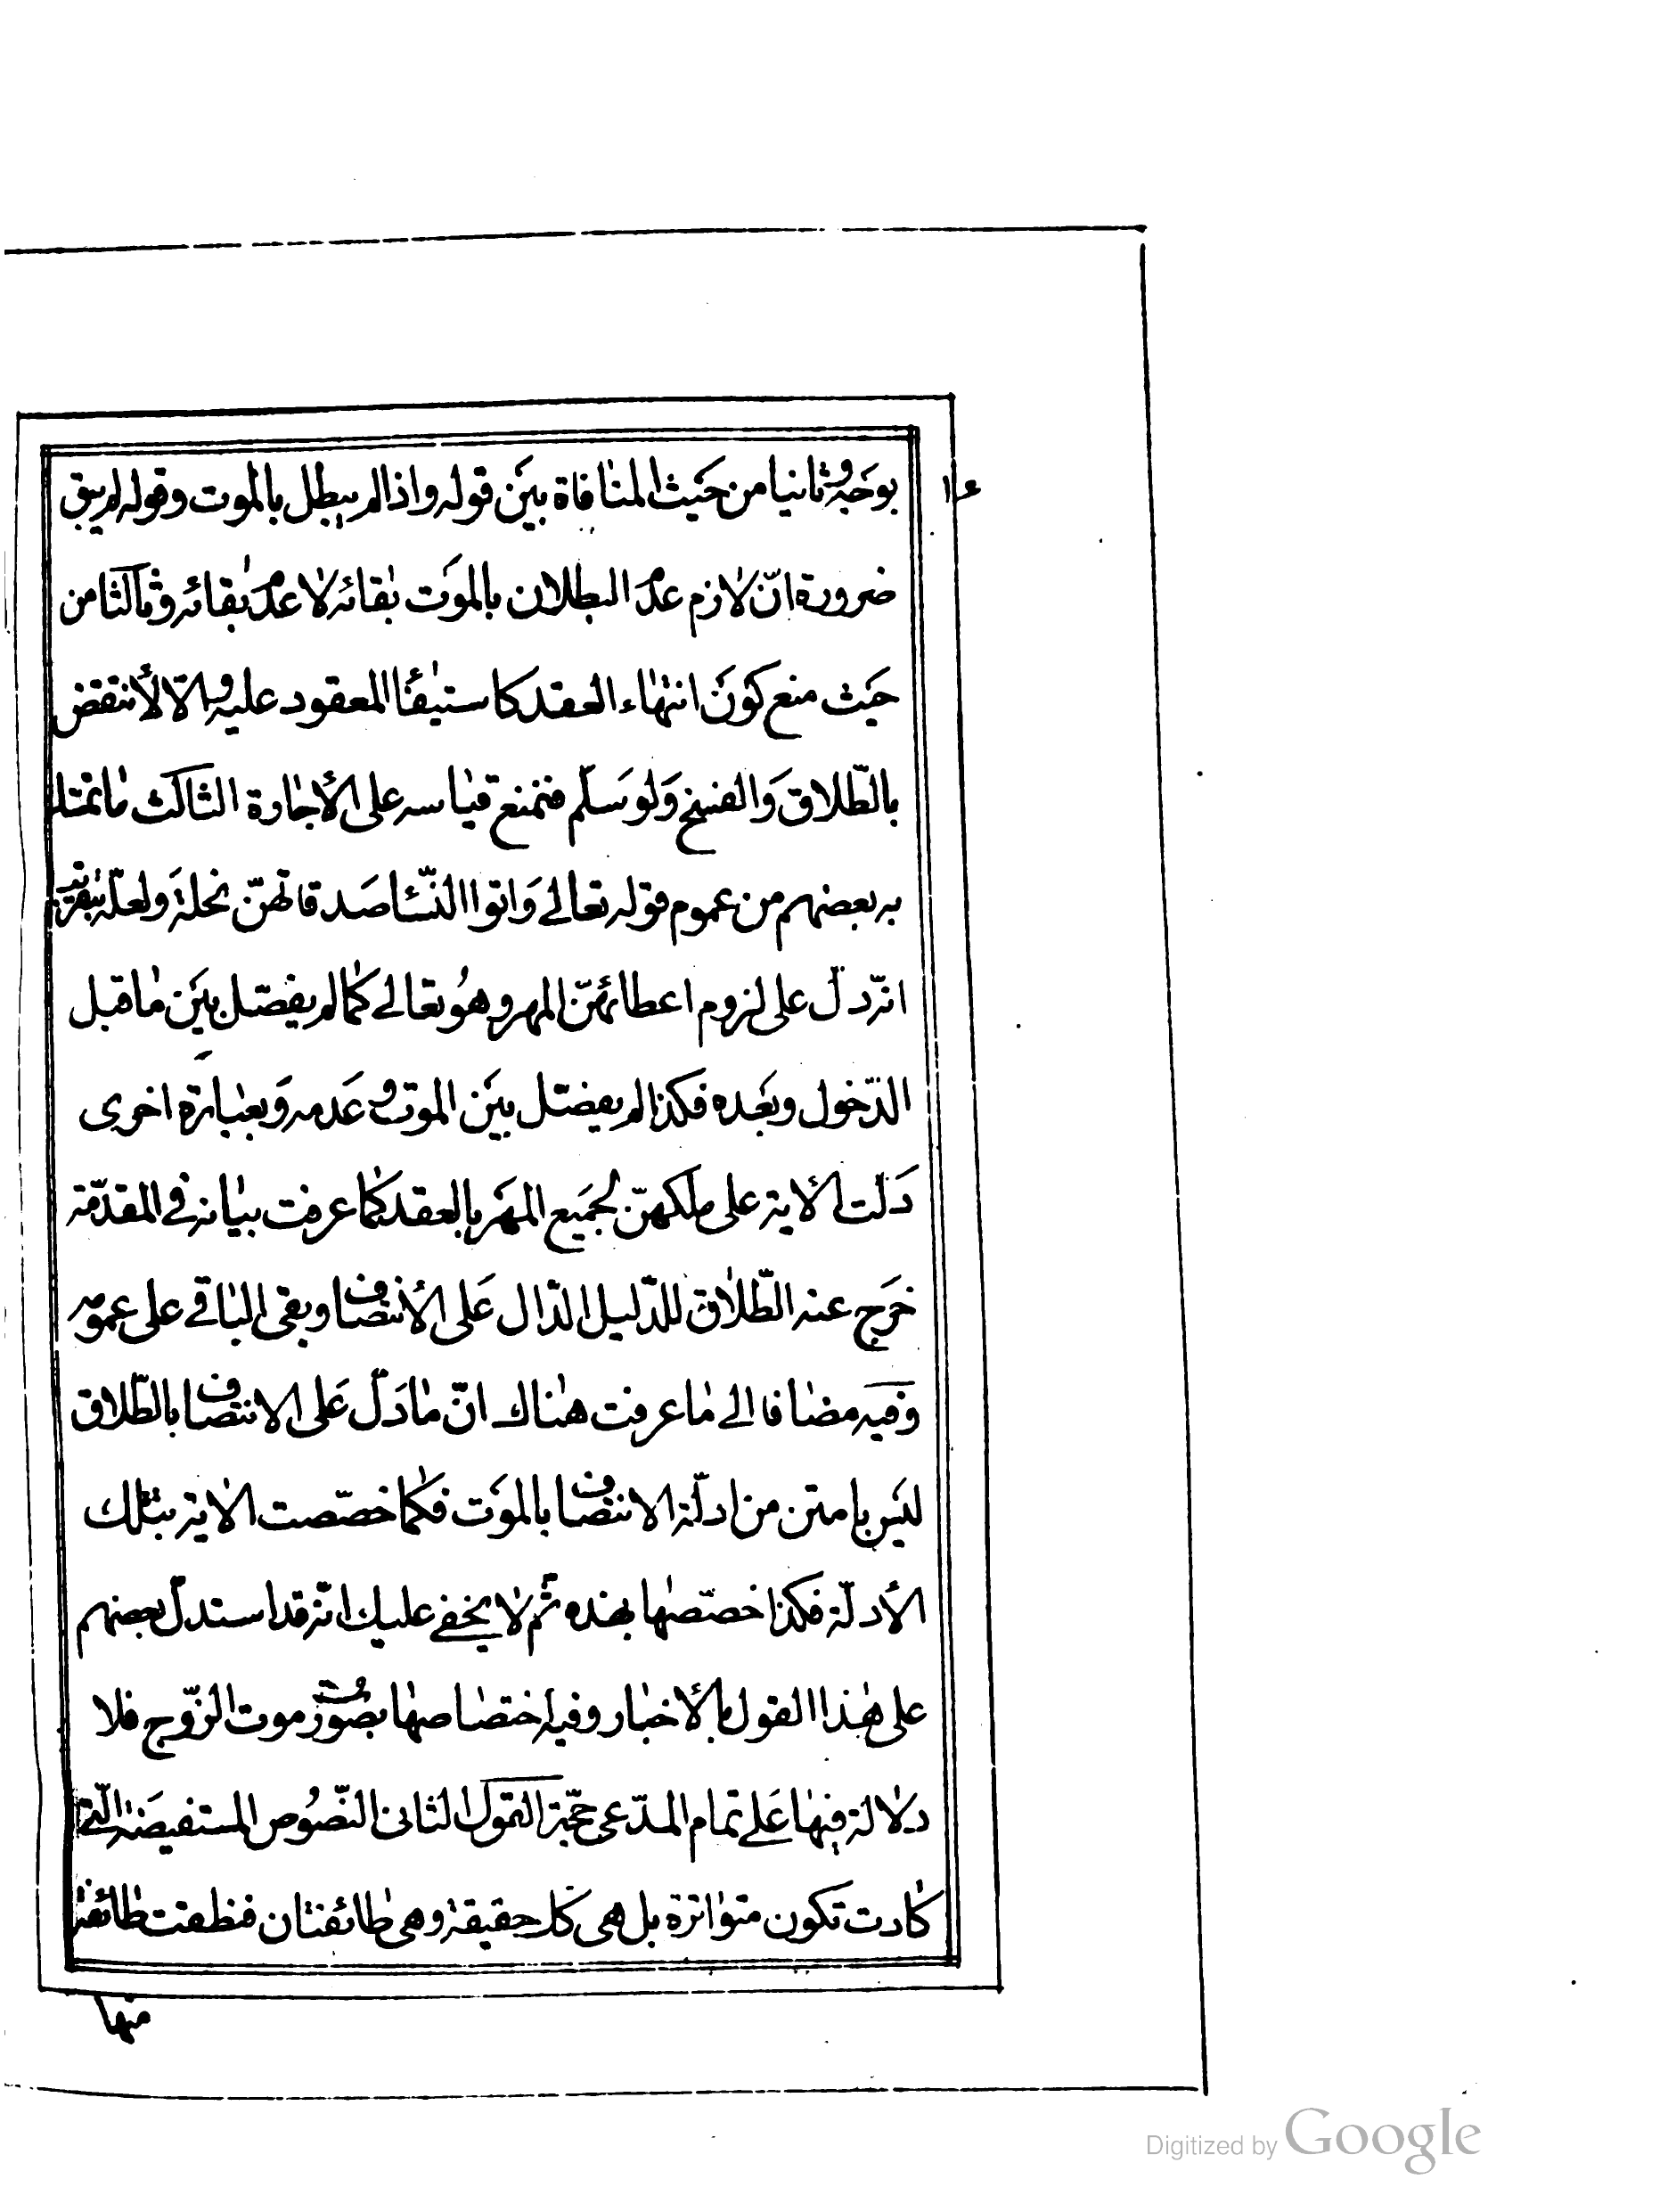 بوجه وثانيا من حيث المنافاة بين قوله واذا لم يبطل بالموت وقوله لم يبق
ضرورة انّ لازم عدم البطلان بالموت بقائه لا عدم بقائه وثالثا من
حيث منع كون انتهاء العقد كاستيفاء المعقود عليه والّا لأنتقض
بالطّلاق والفسخ ولو سلّم فنمنع قياسه على الأجارة الثالث ما تمسّك
به بعضهم من عموم قوله تعالى واتوا النّساء صدقاتهنّ نحلة ولعلّه بتقريب
انّه دلّ على لزوم اعطائهنّ المهر وهو تعالى كما لم يفصّل بين ما قبل
الدّخول وبعده فكذا لم يفصّل بين الموت وعدمه وبعبارة اخرى
دلّت الأية على ملكهنّ لجميع المهر بالعقد كما عرفت بيانه في المقدّمة
خرج عنه الطّلاق للدّليل الدّال على الأنتصاف وبقى الباقي على عمومه
وفيه مضافا الى ما عرفت هناك انّ ما دلّ على الانتصاف بالطّلاق
ليس بامتن من ادلّة الانتصاف بالموت فكما خصّصت الاية بتلك
الأدلّة فكذا خصّصها بهذه ثم لا يخفى عليك انّه قد استدلّ بعضهم
على هذا القول بالأخبار وفيه اختصاصها بصورة موت الزّوج فلا
دلالة فيها على تمام المدّعى حجّة القول الثاني النّصوص المستفيضة الّتي
كادت تكون متواترة بل هي كل حقيقة وهي طائفتان فنطقت طائفة
منها
١٤
Digitized by Google